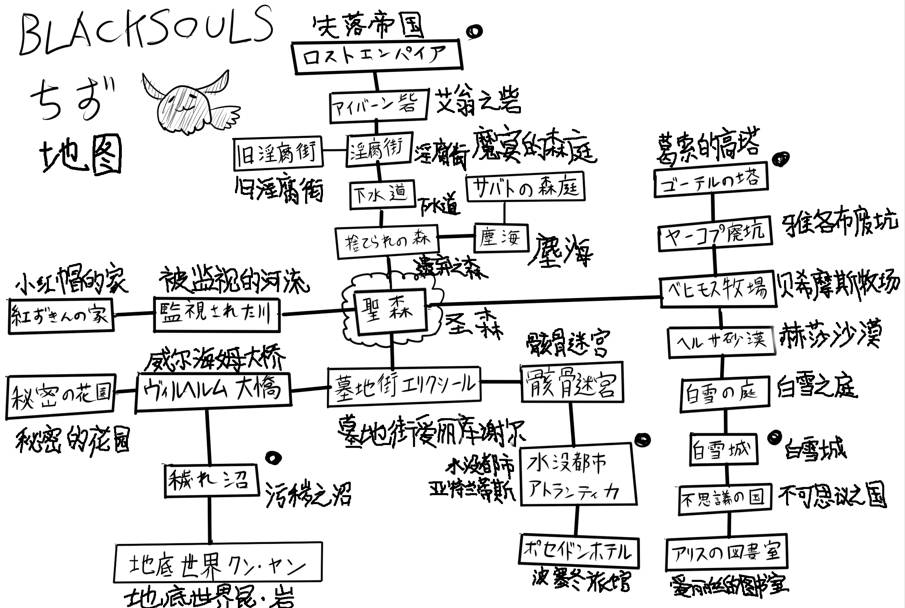 BLACKSOULS
ちず
地图
失落帝国
ロストエンパイア
アイバーン砦
艾翁之砦
旧淫腐街
淫腐街
淫腐街
旧淫腐街
魔宴的森庭
サバトの森庭
下水道
下水道
捨てられの森
遗弃之森
塵海
塵海
葛索的高塔
ゴーテルの塔
ヤーコプ廃坑
雅各布废坑
小红帽的家
紅ずきんの家
被监视的河流
監視された川
聖森
圣森
ベヒモス牧場
贝希摩斯牧场
ヘルサ砂漠
赫莎沙漠
威尔海姆大桥
秘密の花園
秘密的花园
ヴィルヘルム大橋
墓地街エリクシール
墓地街爱丽库谢尔
骸骨迷宫
骸骨迷宮
白雪の庭
白雪之庭
穢れ沼
污秽之沼
水没都市
亚特兰蒂斯
水没都市
アトランティカ
白雪城
白雪城
不思議の国
不可思议之国
地底世界クン・ヤン
地底世界昆・岩
ポセイドンホテル
波塞冬旅馆
アリスの図書室
爱丽丝的图书室